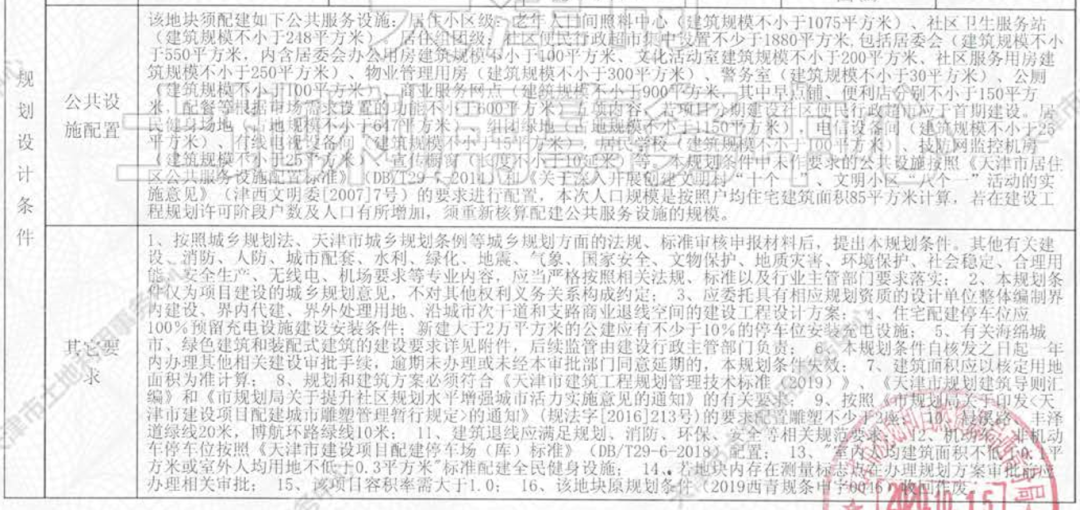 该地块须配建如下公共服务设施：居住小区级：老年人日间照料中心（建筑规模不小于1075平方米）、社区卫生服务站
（建筑规模不小于248平方米）、居住组团级：社区便民行政超市集中设置不少于1880平方米，包括居委会（建筑规模不小
于550平方米，内含居委会办公用房建筑规模不小于100平方米、文化活动室建筑规模不小于200平方米、社区服务用房建
筑规模不小于250平方米）、物业管理用房（建筑规模不小于300平方米）、警务室（建筑规模不小于30平方米）、公厕
（建筑规模不小于100平方米）、商业服务网点（建筑规模不小于900平方米，其中早点铺、便利店分别不小于150平方
米，配餐等根据市场需求设置的功能不小于600平方米）五项内容，若项目分期建设社区便民行政超市应于首期建设。居
民健身场地（占地规模不小于647平方米）、组团绿地（占地规模不小于1150平方米）、电信设备间（建筑规模不小于25
平方米）、有线电视设备间（建筑规模不小于15平方米）、居民学校（建筑规模不小于100平方米）、技防网监控机房
（建筑规模不小于25平方米）、宣传橱窗（长度不小于10延米）等。本规划条件中未作要求的公共设施按照《天津市居住
区公共服务设施配置标准》（DB/T29-7-2014）和《关于深入开展创建文明村"十个一"、文明小区"八个一"活动的实
施意见》（津西文明委[2007]7号）的要求进行配置，本次人口规模是按照户均住宅建筑面积85平方米计算，若在建设工
程规划许可阶段户数及人口有所增加，须重新核算配建公共服务设施的规模。
规划设计条件
公共设
施配置
1、按照城乡规划法、天津市城乡规划条例等城乡规划方面的法规、标准审核申报材料后，提出本规划条件。其他有关建
设、消防、人防、城市配套、水利、绿化、地震、气象、国家安全、文物保护、地质灾害、环境保护、社会稳定、合理用
能、安全生产、无线电、机场要求等专业内容，应当严格按照相关法规、标准以及行业主管部门要求落实； 2、本规划条
件仅为项目建设的城乡规划意见，不对其他权利义务关系构成约定； 3、应委托具有相应规划资质的设计单位整体编制界
内建设、界内代建、界外处理用地、沿城市次干道和支路商业退线空间的建设工程设计方案； 4、住宅配建停车位应
100%预留充电设施建设安装条件；新建大于2万平方米的公建应有不少于10%的停车位安装充电设施； 5、有关海绵城
市、绿色建筑和装配式建筑的建设要求详见附件，后续监管由建设行政主管部门负责； 6、本规划条件自核发之日起一年
内办理其他相关建设审批手续，逾期未办理或未经本审批部门同意延期的，本规划条件失效； 7、建筑面积应以核定用地
面积为准计算； 8、规划和建筑方案必须符合《天津市建筑工程规划管理技术标准（2019）》、《天津市规划建筑导则汇
编》和《市规划局关于提升社区规划水平增强城市活力实施意见的通知》的有关要求； 9、按照《市规划局关于印发<天
津市建设项目配建城市雕塑管理暂行规定>的通知》（规法字[2016]213号)的要求配置雕塑不少于2座； 10、 丰泽
道绿线20米，博航环路绿线10米； 11、建筑退线应满足规划、消防、环保、安全等相关规范要求； 12、机动车、非机动
车停车位按照《天津市建设项目配建停车场（库）标准》（DB/T29-6-2018）配置； 13、室内人均建筑面积不低于0. 平
方米或室外人均用地不低于0.3平方米"标准配建全民健身设施； 14、若地块内存在测量标志点在办理规划方案审批前应
办理相关审批； 15、该项目容积率需大于1.0； 16、该地块原规划条件（2019西青规条申字0046）收回作废
其它要
求
2020.10.15